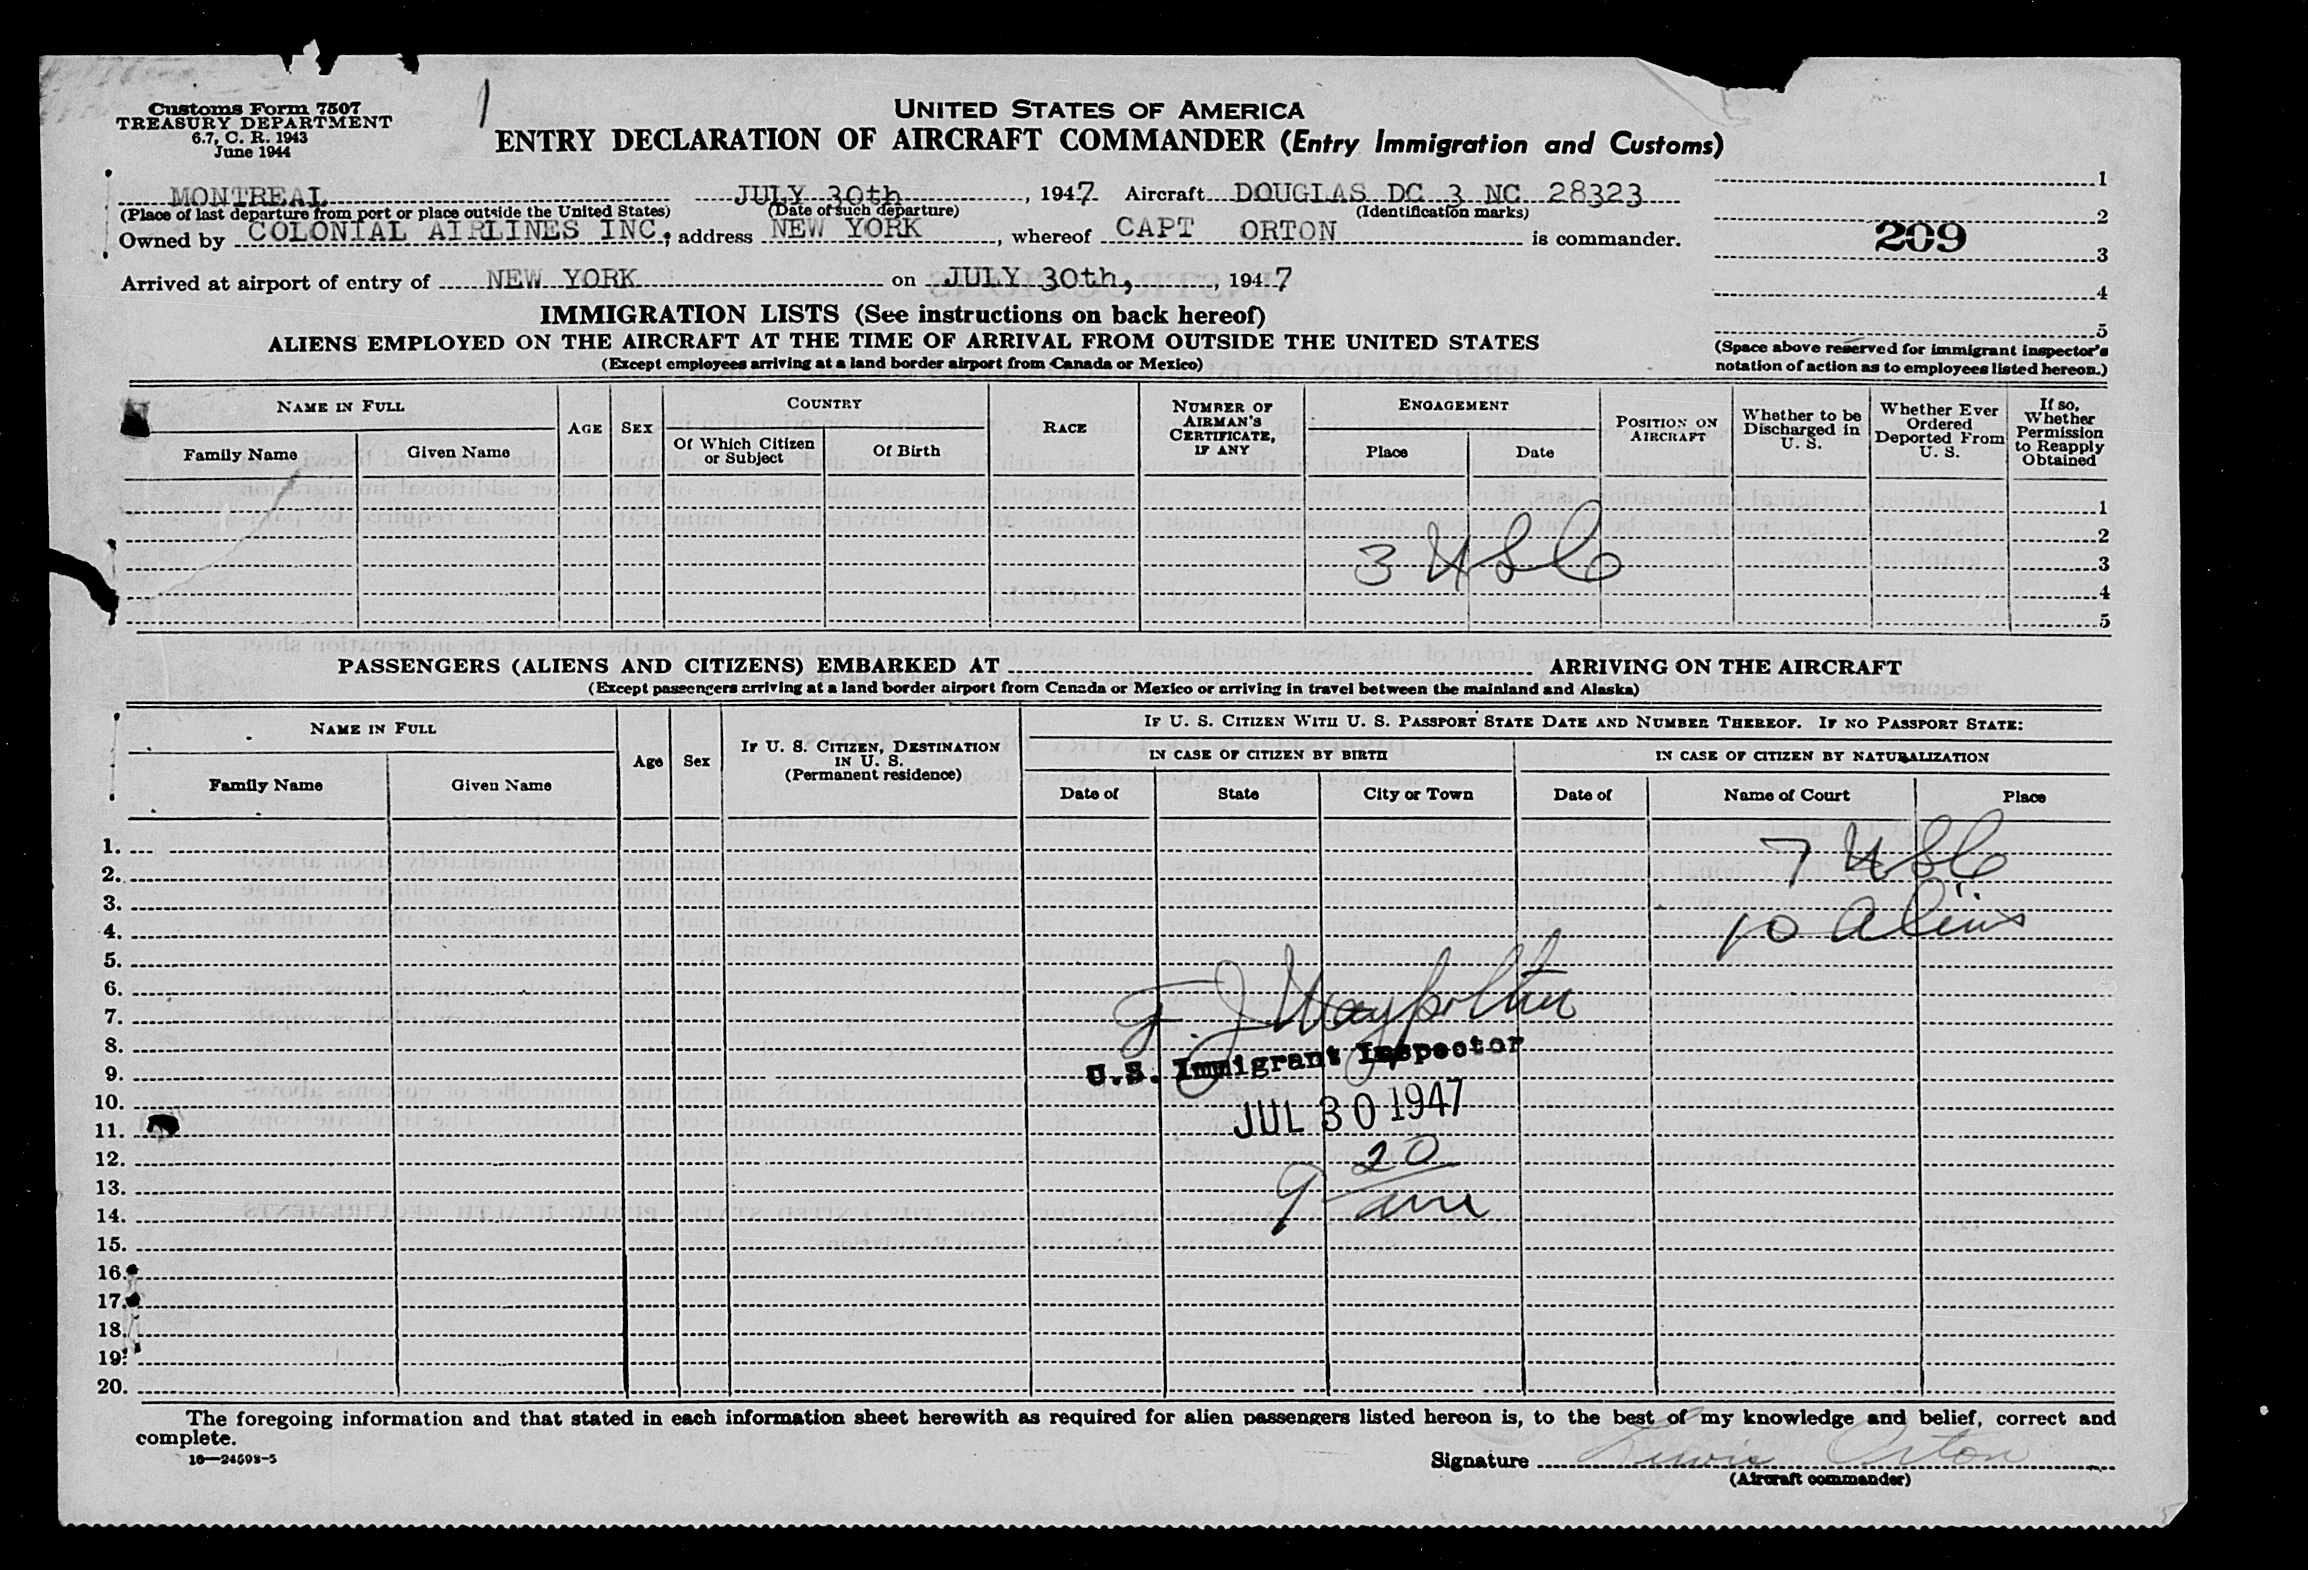 Customs Form 7507
TREASURY DEPARTMENT
6.7, C. R. 1943
June 1944
UNITED STATES OF AMERICA
ENTRY DECLARATION OF AIRCRAFT COMMANDER (Entry Immigration and Customs)
MONTREAL JULY 30th, 1947 Aircraft DOUGLAS DC 3 NC 28323
(Place of last departure from port or place outside the United States) (Date of such departure) (Identification marks)
Owned by COLONIAL AIRLINES INC, address NEW YORK, whereof CAPT ORTON is commander.
Arrived at airport of entry of NEW YORK on JULY 30th, 1947
1
2
209
3
4
5
(Space above reserved for immigrant inspector's
notation of action as to employees listed hereon.)
IMMIGRATION LISTS (See instructions on back hereof)
ALIENS EMPLOYED ON THE AIRCRAFT AT THE TIME OF ARRIVAL FROM OUTSIDE THE UNITED STATES
(Except employees arriving at a land border airport from Canada or Mexico)
NAME IN FULL
Family Name Given Name
AGE
SEX
COUNTRY
Of Which Citizen or Subject
Of Birth
RACE
NUMBER OF AIRMAN'S CERTIFICATE, IF ANY
ENGAGEMENT
Place Date
POSITION ON AIRCRAFT
Whether to be Discharged in U. S.
Whether Ever Ordered Deported From U. S.
If so, Whether Permission to Reapply Obtained
1
2
3 USC
3
4
5
PASSENGERS (ALIENS AND CITIZENS) EMBARKED AT ARRIVING ON THE AIRCRAFT
(Except passengers arriving at a land border airport from Canada or Mexico or arriving in travel between the mainland and Alaska)
NAME IN FULL
Family Name Given Name
Age
Sex
IF U. S. CITIZEN, DESTINATION IN U. S.
(Permanent residence)
IF U. S. CITIZEN WITH U. S. PASSPORT STATE DATE AND NUMBER THEREOF. IF NO PASSPORT STATE:
IN CASE OF CITIZEN BY BIRTH
IN CASE OF CITIZEN BY NATURALIZATION
Date of State City or Town Date of Name of Court Place
1. 7 USC
2.
3.
4. 10 aliens
5.
6.
7. F. J.
8.
9. U.S. Immigrant Inspector
10.
11. JUL 30 1947
12.
13. 9 20 am
14.
15.
16.
17.
18.
19.
20.
The foregoing information and that stated in each information sheet herewith as required for alien passengers listed hereon is, to the best of my knowledge and belief, correct and
complete.
16—24598-5
Signature Lewis Orton
(Aircraft commander)